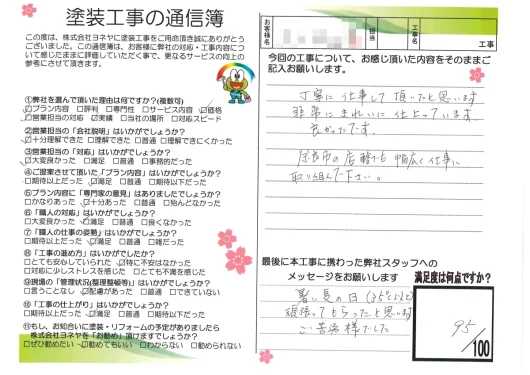 塗装工事の通信簿
この度は、株式会社ヨネヤに塗装工事をご用命頂き誠にありがとう
ございました。この通信簿は、お客様に弊社の対応・工事内容に
ついて感じたままに評価していただく事で、更なるサービスの向上の
参考にさせて頂きます。
①弊社を選んで頂いた理由は何ですか?(複数可)
プラン内容 □評判 □専門性 □サービス内容 価格
営業担当の対応 実績 □当社の場所 □対応スピード
②営業担当の「会社説明」はいかがでしょうか?
十分理解できた □理解できた □普通 □理解できにくかった
③営業担当の「対応」はいかがでしょうか?
大変良かった □満足 □普通 □事務的だった
④ご提案させて頂いた「プラン内容」はいかがでしょうか?
□期待以上だった 満足 □普通 □期待以下だった
⑤プラン内容に「専門家の意見」はありましたでしょうか?
□かなりあった 十分あった □普通 □殆んどなかった
⑥「職人の対応」はいかがでしょうか?
□大変良かった 満足 □普通 □良くなかった
⑦「職人の仕事の姿勢」はいかがでしょうか?
□期待以上だった 満足 □普通 □雑だった
⑧「工事の進め方」はいかがでしたか?
□とても安心していられた 特に不安はなかった
□対応に少しストレスを感じた □とても不満を感じた
⑨現場の「管理状況(整理整頓等)」はいかがでしょうか?
□言うことなし 配慮があった □普通 □できていない
⑩「工事の仕上がり」はいかがでしょうか?
□期待以上だった 満足 □普通 □期待以下だった
⑪もし、お知合いに塗装・リフォームの予定がありましたら
株式会社ヨネヤを「お勧め」頂けますでしょうか?
□ぜひ勧めたい 勧めてもいい □わからない □勧められない
お客様名
担当
工事名
工事
今回の工事について、お感じ頂いた内容をそのままご
記入お願いします。
丁寧に仕事して頂いたと思います
非常にきれいに仕上っています
良かったです。
奈良市の店舗でも幅広く仕事に
取り組んで下さい。
最後に本工事に携わった弊社スタッフへの
メッセージをお願いします
暑い夏の日(35°以上)
頑張ってもらったと思います
ご苦労様でした
満足度は何点ですか?
95
/100